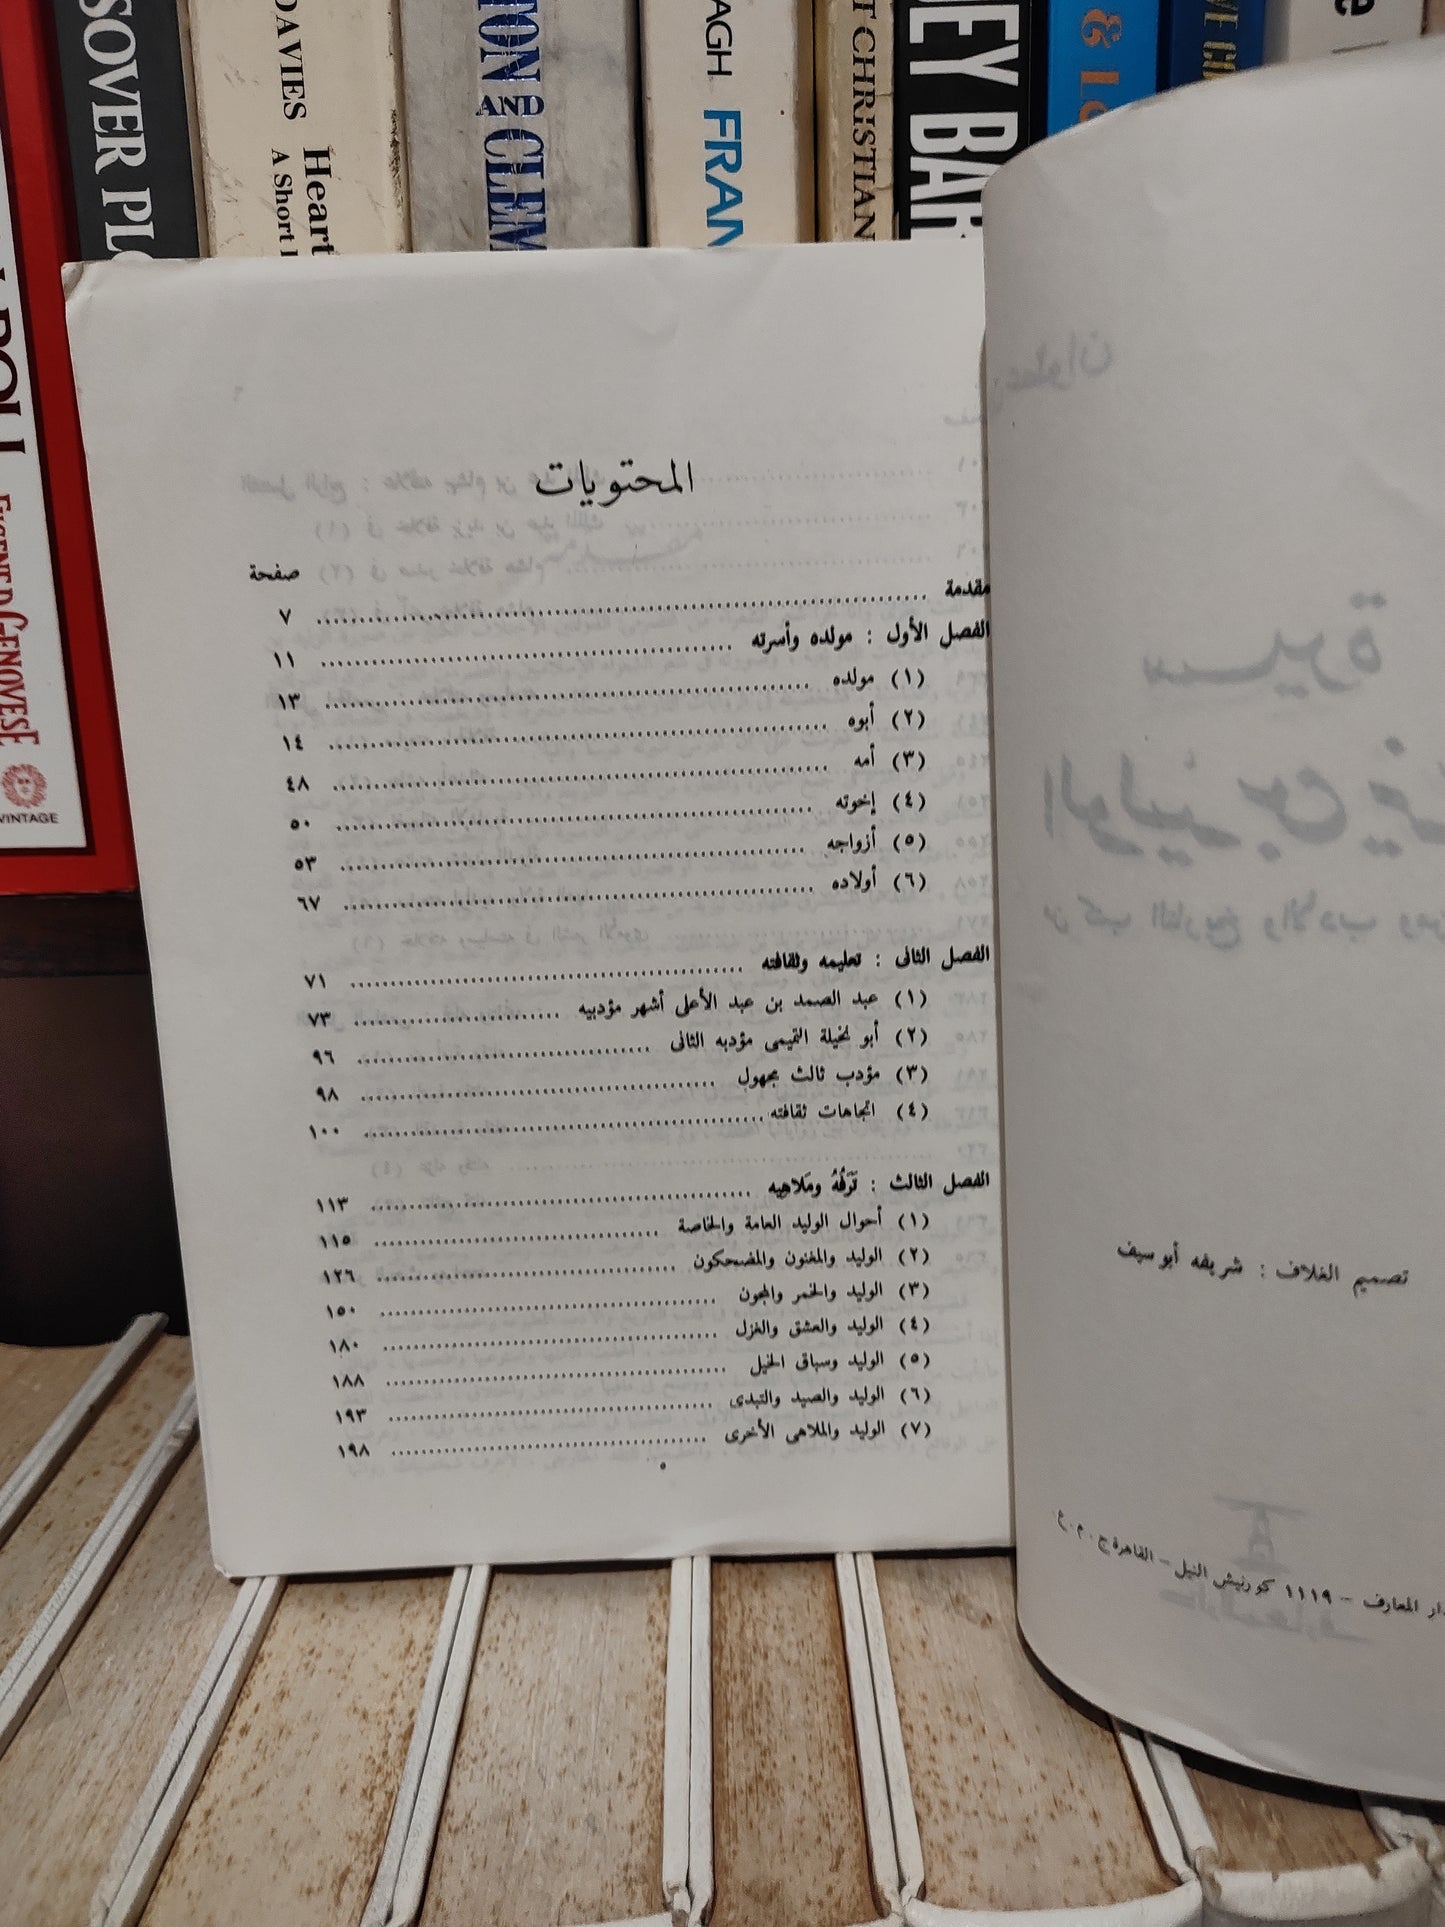 SOVER
DAVIES Heart
A Short
AND CLEM
AGH FRAN
CHRISTIAN
EY BA
&
VINTAGE
GENOVESE
المحتويات
صفحة
مقدمة ................ ٧
الفصل الأول : مولده وأسرته ................ ١١
(١) مولده ................ ١٣
(٢) أبوه ................ ١٤
(٣) أمه ................ ٤٨
(٤) إخوته ................ ٥٠
(٥) أزواجه ................ ٥٣
(٦) أولاده ................ ٦٧
الفصل الثانى : تعليمه وثقافته ................ ٧١
(١) عبد الصمد بن عبد الأعلى أشهر مؤدبيه ................ ٧٣
(٢) أبو نخيلة التميمى مؤدبه الثانى ................ ٩٦
(٣) مؤدب ثالث مجهول ................ ٩٨
(٤) اتجاهات ثقافته ................ ١٠٠
الفصل الثالث : تَرَفُهُ ومَلاهِيه ................ ١١٣
(١) أحوال الوليد العامة والخاصة ................ ١١٥
(٢) الوليد والمغنون والمضحكون ................ ١٢٦
(٣) الوليد والخمر والمجون ................ ١٥٠
(٤) الوليد والعشق والغزل ................ ١٨٠
(٥) الوليد وسباق الخيل ................ ١٨٨
(٦) الوليد والصيد والتبدى ................ ١٩٣
(٧) الوليد والملاهى الأخرى ................ ١٩٨
٥
تصميم الغلاف : شريفه أبو سيف
دار المعارف - ١١١٩ كورنيش النيل - القاهرة ج . م . ع .